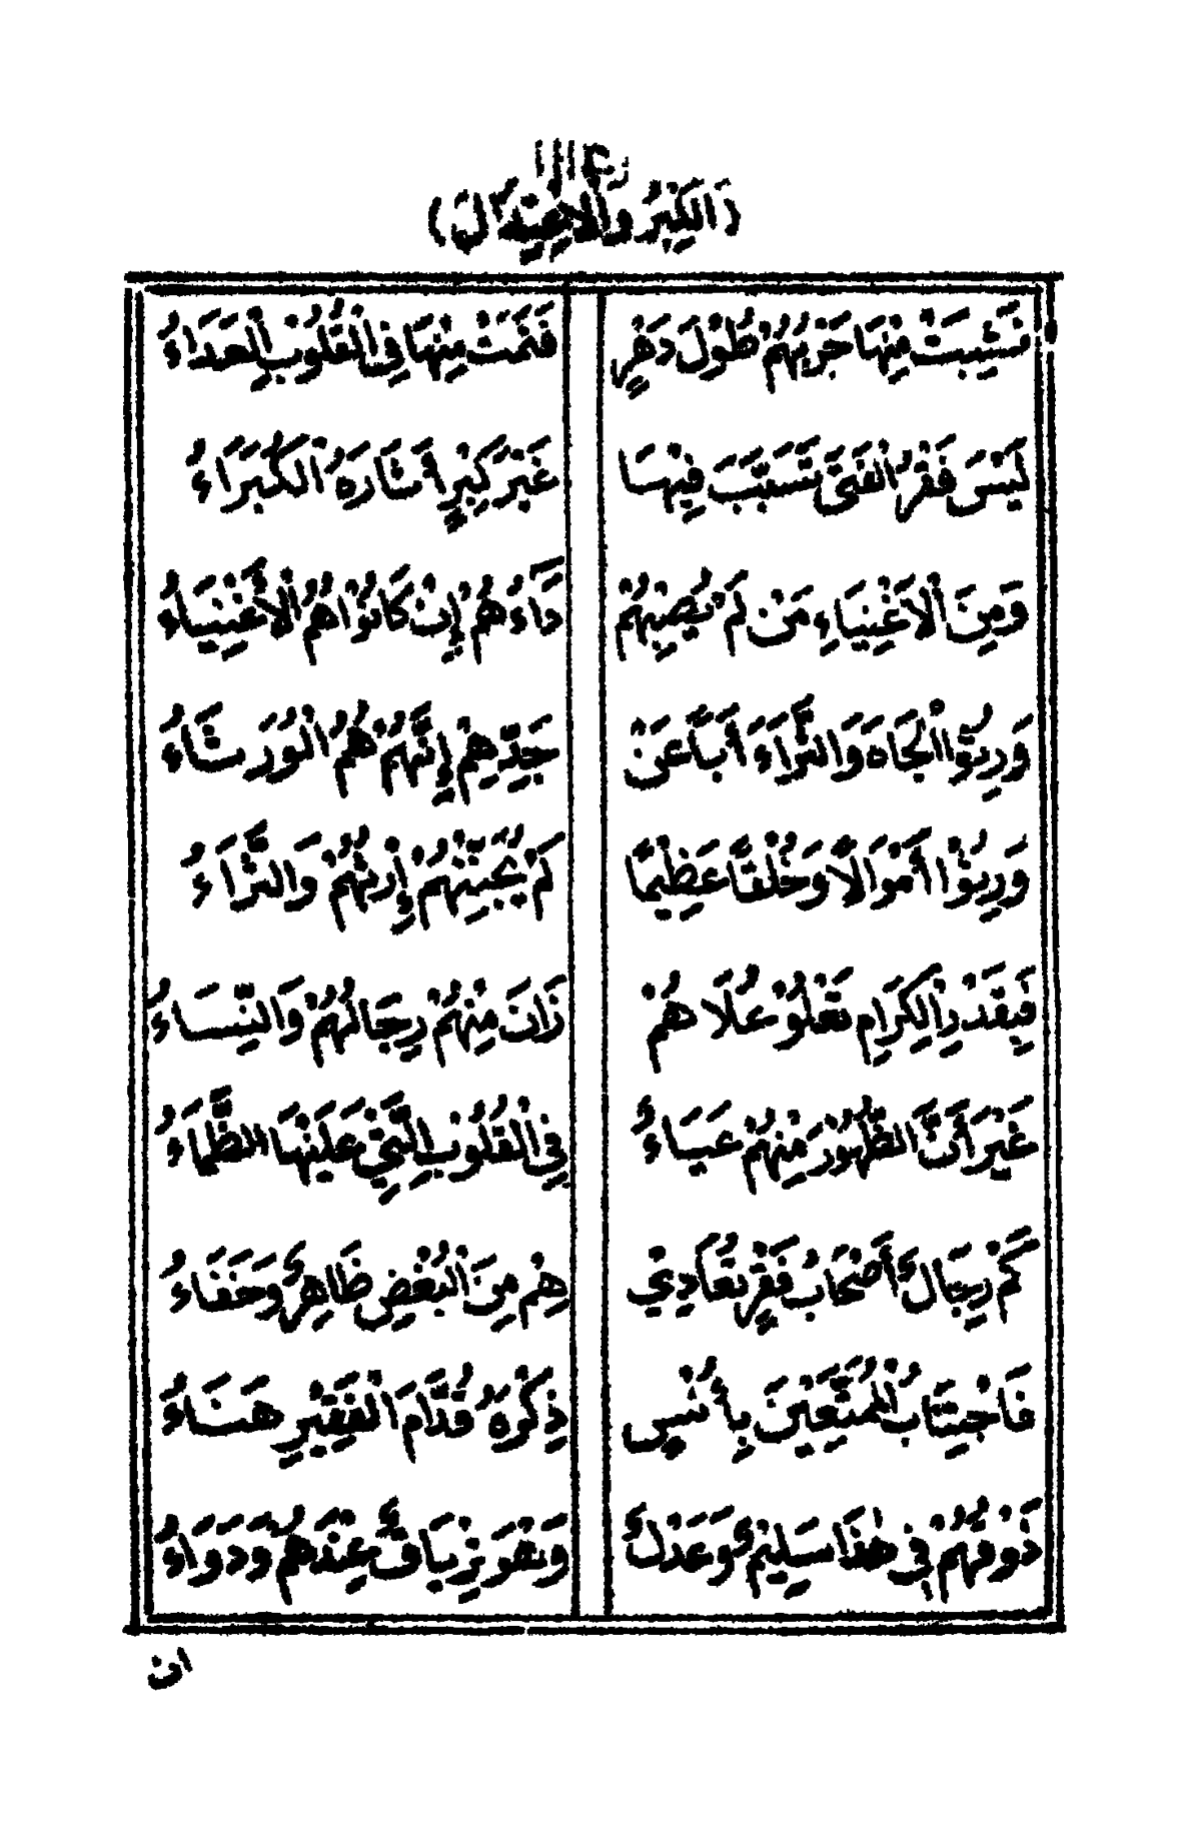 (الْكِبْرُ وَالْاِعْتِدَالَ)
نَشِبَتْ مِنْهَا حَرْبُهُمْ طُوْلَ دَهْرٍ فَنَمَتْ مِنْهَا فِى الْقُلُوْبِ الْعَدَاءُ
لَيْسَ فَقْرُ الْفَتَى تَسَبَّبَ فِيْهَا غَيْرَ كِبْرٍ أَثَارَهُ الْكُبَرَاءُ
وَمِنَ الْاَغْنِيَاءِ مَنْ لَمْ يُصِبْهُمْ دَاءُهُمْ إِنْ كَانُوْا هُمُ الْأَغْنِيَاءُ
وَرِثُوا الْجَاهَ وَالثَّرَاءَ أَبًا عَنْ جَدِّهِمْ إِنَّهُمْ هُمُ الْوُرَثَاءُ
وَرِثُوْا أَمْوَالًا وَخُلْقًا عَظِيْمًا لَمْ يُجَنِّبْهُمْ إِرْثُهُمْ وَالثَّرَاءُ
فَبِقَدْرِ الْكِرَامِ تَعْلُوْ عُلَا هُمْ زَانَ مِنْهُمْ رِجَالُهُمْ وَالنِّسَاءُ
غَيْرَ أَنَّ الظُّهُوْرَ مِنْهُمْ عَيَاءٌ فِى الْقُلُوْبِ الَّتِيْ عَلَيْهَا الظَّمَاءُ
كَمْ رِجَالٌ أَصْحَابُ فَقْرٍ تُعَادِيْ هِمْ مِنَ الْبُغْضِ ظَاهِرٌ وَخَفَاءُ
فَاجْتِنَابُ الْمُتَّبِعِيْنَ بِأُنْسٍ ذِكْرَهُ قُدَّامَ الْفَقِيْرِ هَنَاءُ
ذَوْقُهُمْ فِيْ هٰذَا سَلِيْمٌ وَعَدْلٌ وَنُقُوْدٌ عِنْدَهُمْ وَدَوَاءُ
ان